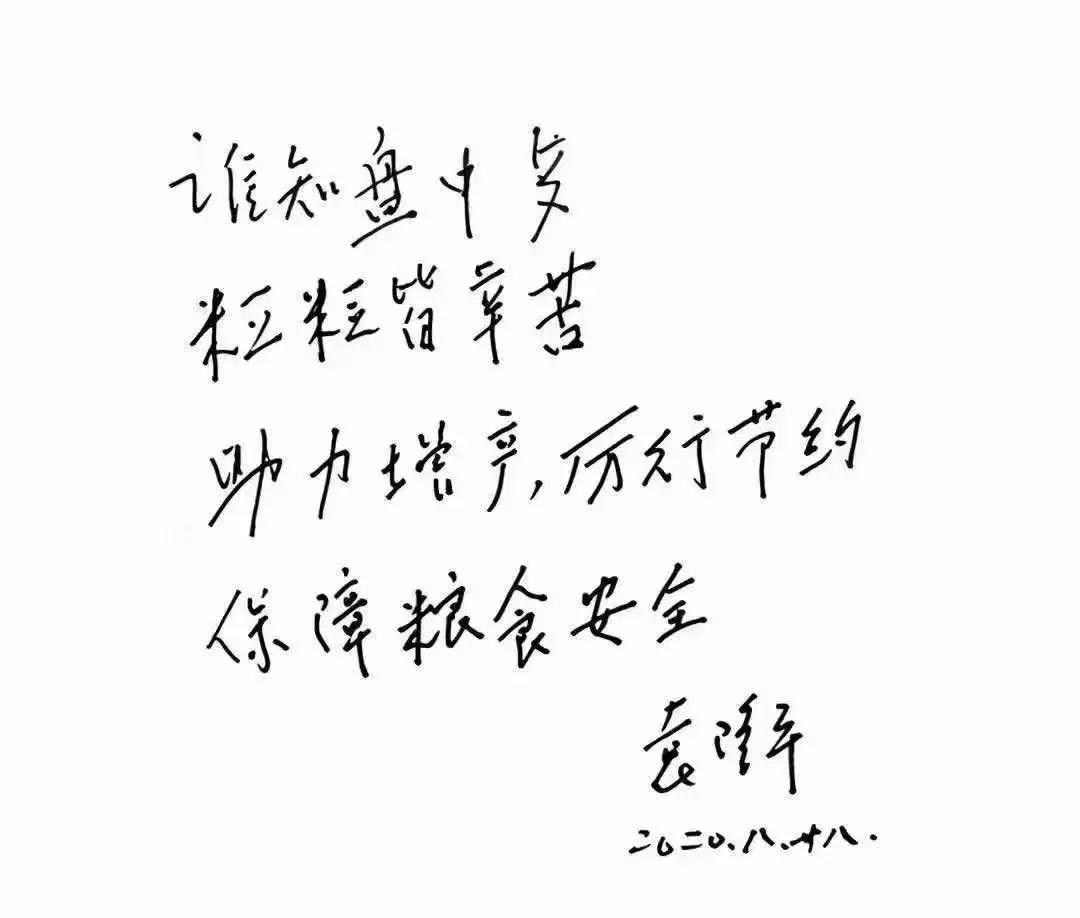 谁知盘中歺
粒粒皆辛苦
助力增产,厉行节约
保障粮食安全
袁隆平
二〇二〇、八、廿八.